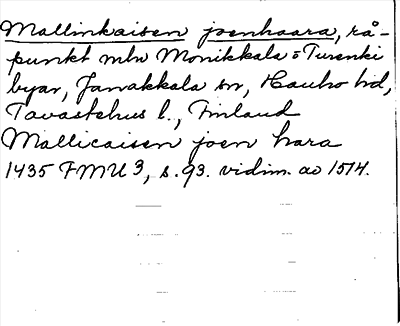 Mallinkaisen joenhaara, rå-
punkt mln Monikkala o Turenki
byar, Janakkala sn, Hauho hd,
Tavastehus l., Finland
Mallicaisen joen hara
1435 FMU 3, s. 93. vidim. ao 1514.